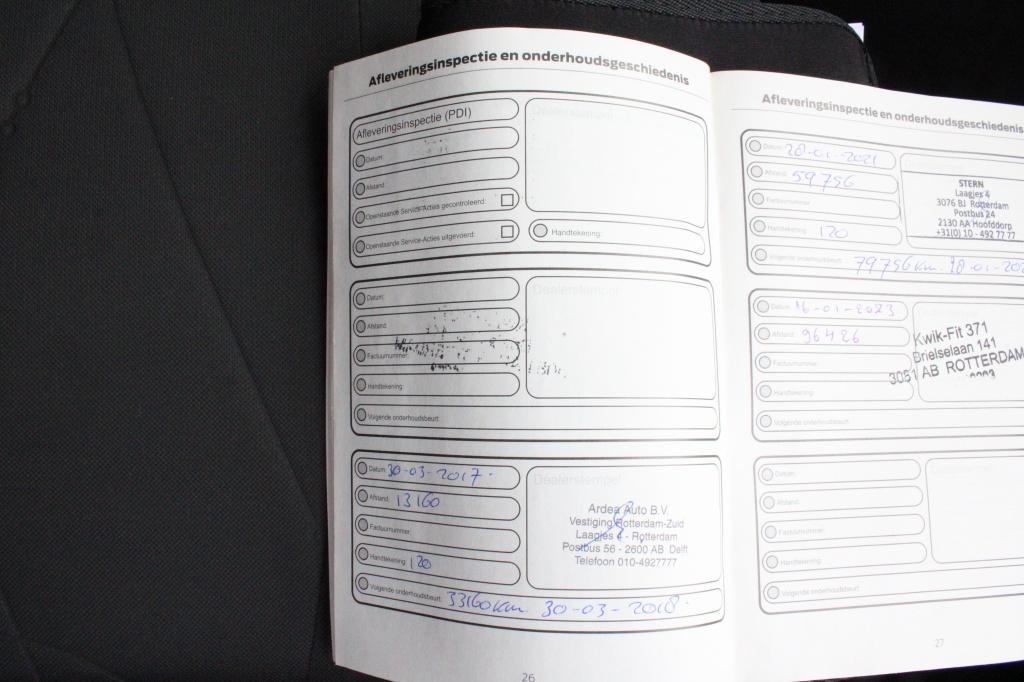 Afleveringsinspectie en onderhoudsgeschiedenis
Afleveringsinspectie (PDI)
Dealerstempel
Datum:
Afstand:
Openstaande Service-Acties gecontroleerd:
Openstaande Service-Acties uitgevoerd:
Handtekening:
Datum:
Dealerstempel
Afstand:
Factuurnummer:
Handtekening:
Volgende onderhoudsbeurt:
Datum: 30-03-2017
Dealerstempel
Afstand: 13160
Factuurnummer:
Handtekening: 120
Volgende onderhoudsbeurt: 33160 km. 30-03-2018
Ardea Auto B.V.
Vestiging Rotterdam-Zuid
Laagjes 4 - Rotterdam
Postbus 56 - 2600 AB Delft
Telefoon 010-4927777
26
Afleveringsinspectie en onderhoudsgeschiedenis
Datum: 28-01-2021
Afstand: 59756
Factuurnummer:
Handtekening: 120
Volgende onderhoudsbeurt: 79756 km.
STERN
Laagjes 4
3076 BJ Rotterdam
Postbus 24
2130 AA Hoofddorp
+31(0) 10 - 492 77 77
Datum: 16-01-2023
Afstand: 96426
Factuurnummer:
Handtekening:
Volgende onderhoudsbeurt:
Kwik-Fit 371
Brielselaan 141
3081 AB ROTTERDAM
Datum:
Afstand:
Factuurnummer:
Handtekening:
Volgende onderhoudsbeurt:
27